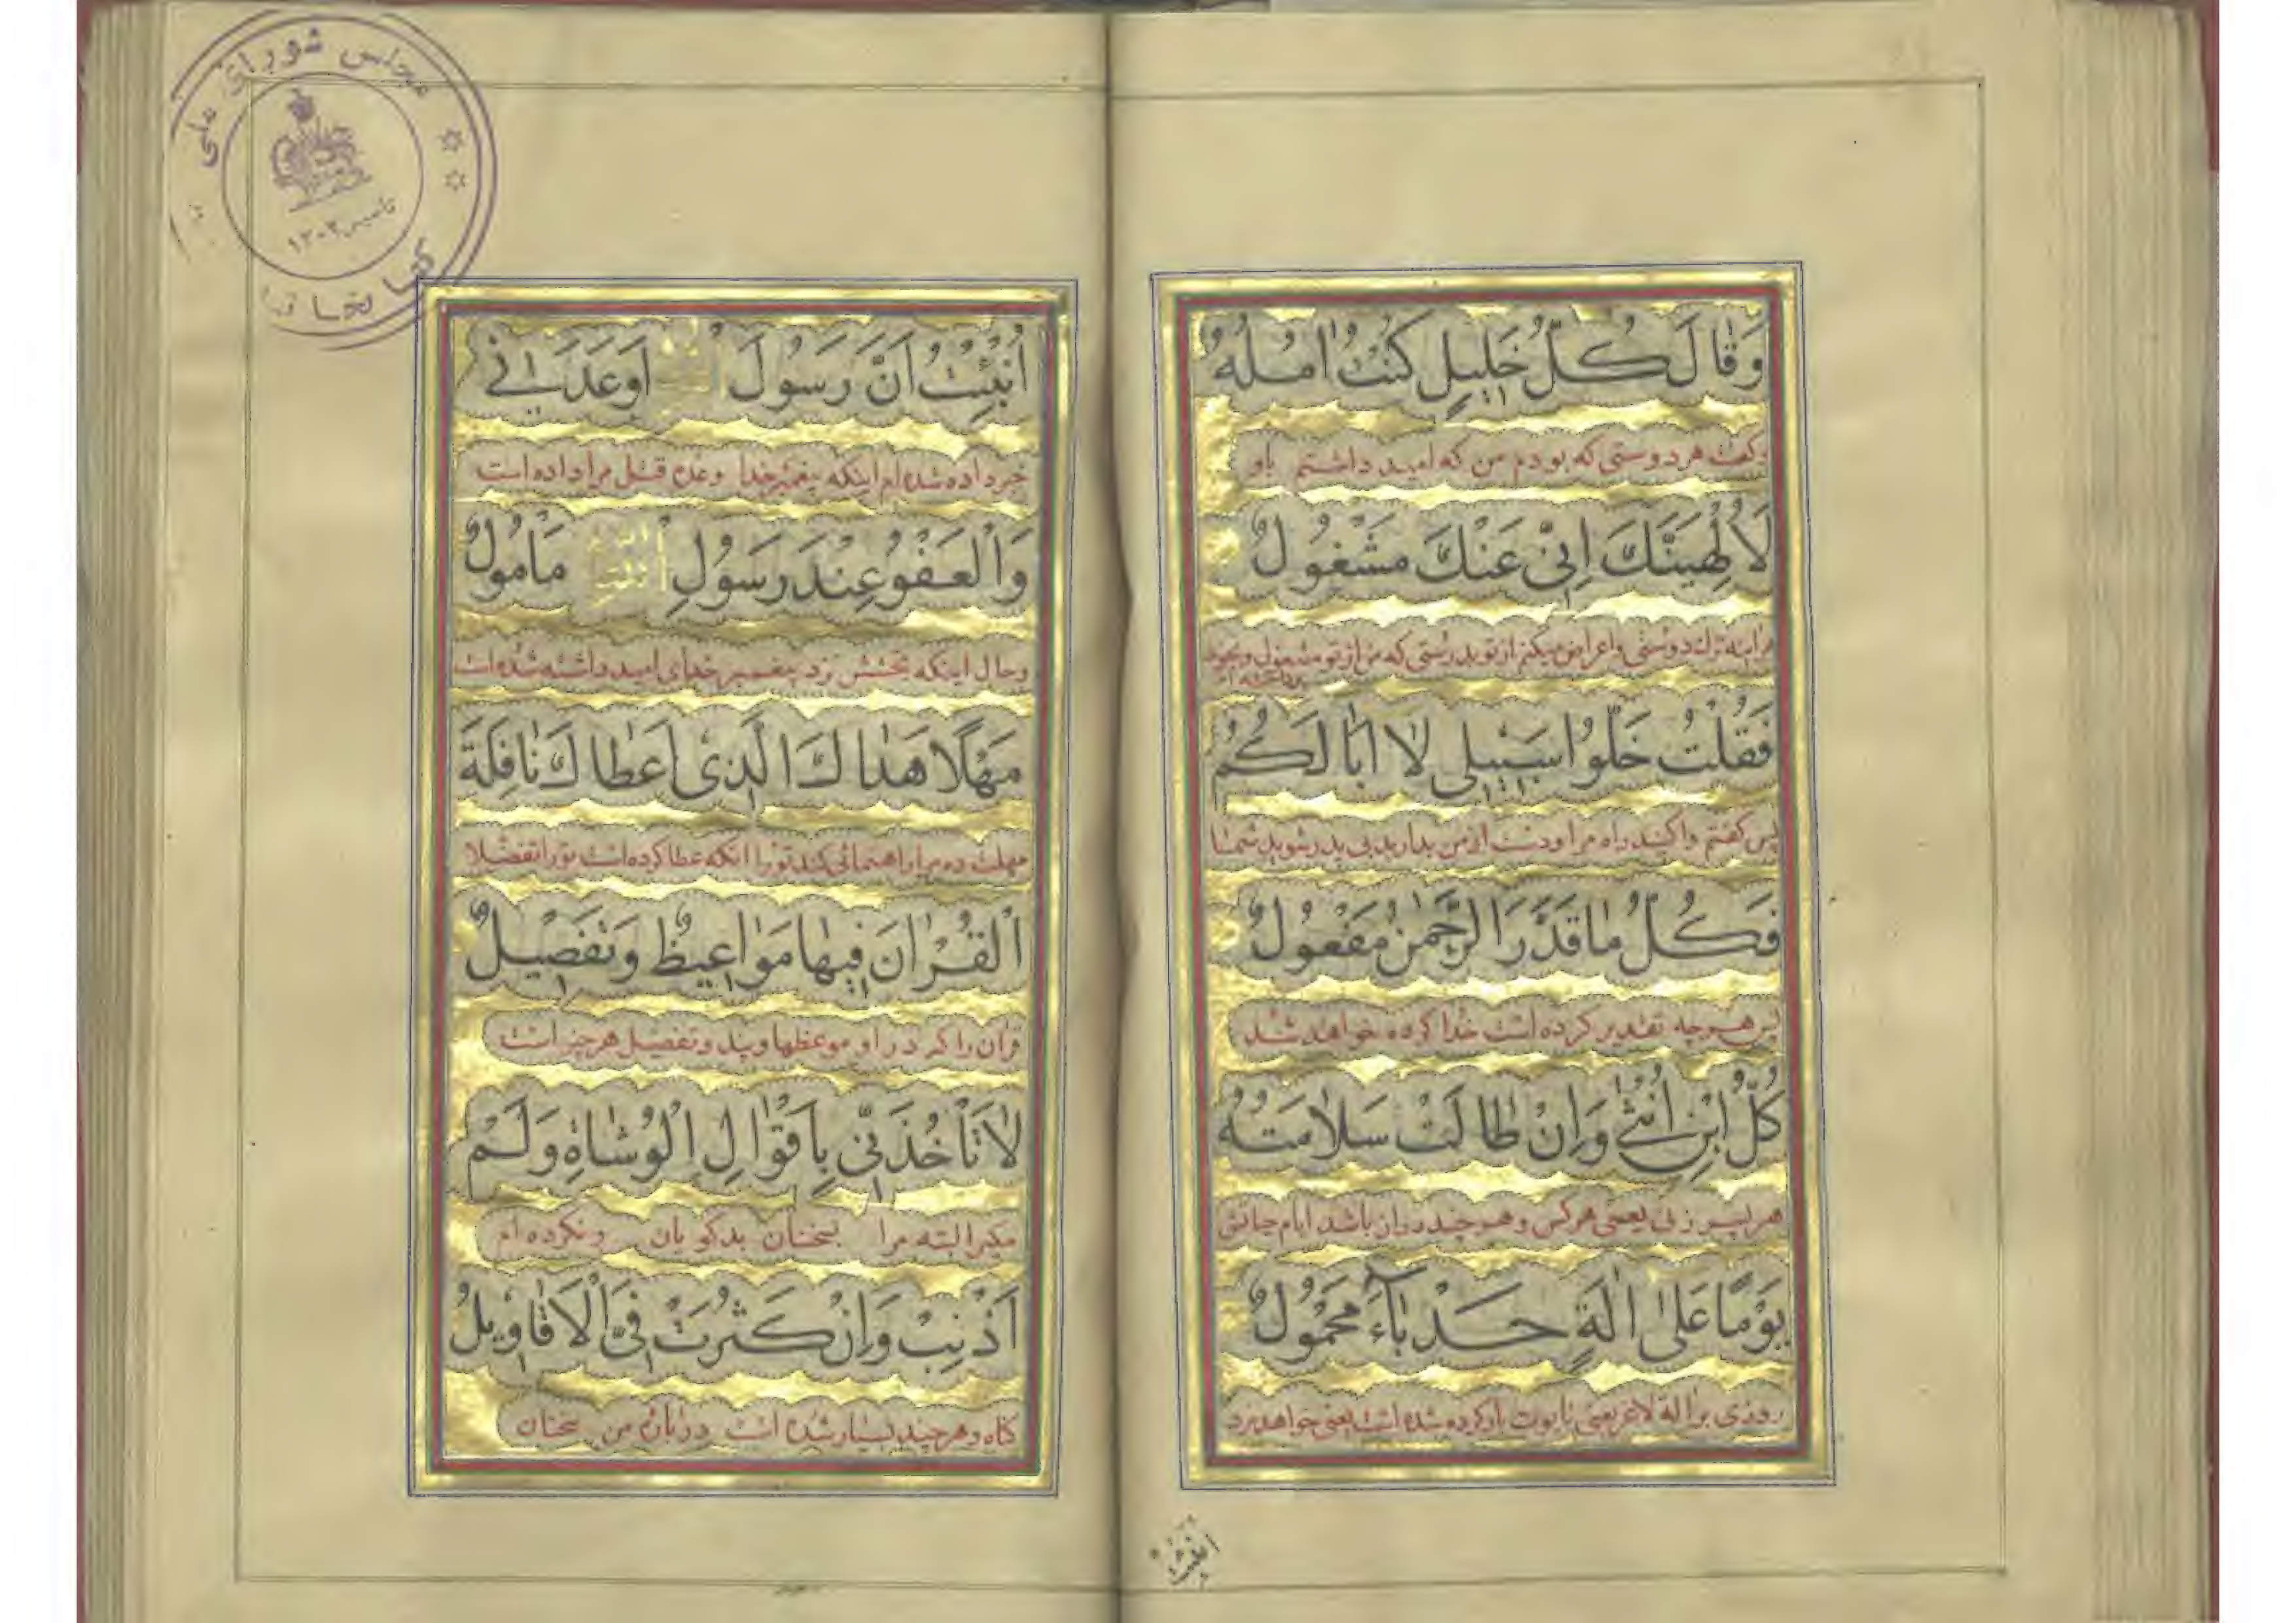 وَقٰالَ كُلُّ خَلِيلٍ كُنْتُ اٰمُلُهُ
وگفت هر دوستی که بودم من که امید داشتم باو
لَا اُلْهِيَنَّكَ اِنّى عَنْكَ مَشْغُولٌ
هراینه ترك دوستی واعراض میکنم از تو بدرستی که من از تو مشغول وبخود
پرداخته ام
فَقُلْتُ خَلُّوا سَبيلى لٰا اَبٰا لَكُمُ
پس گفتم واکنید راه مرا ودست از من بدارید بی پدر شوید شما
فَكُلُّ مٰا قَدَّرَ الرَّحْمٰنُ مَفْعُولٌ
پس هرچه تقدیر کرده است خدا کرده خواهد شد
كُلُّ ابْنِ اُنْثىٰ وَاِنْ طٰالَتْ سَلٰامَتُهُ
هر پسر زنی یعنی هرکس وهرچند دراز باشد ایام حیاتش
يَوْمًا عَلىٰ اٰلَةٍ حَدْبٰاءَ مَحْمُولٌ
روزی بر آلة لاغر یعنی تابوت بار کرده شده است یعنی خواهد مرد
انبئت
اُنْبِئْتُ اَنَّ رَسُولَ اللهِ اَوْعَدَنى
خبر داده شده ام اینکه پیغمبر خدا وعده قتل مرا داده است
وَالْعَفْوُ عِنْدَ رَسُولِ اللهِ مَأْمُولٌ
وحال اینکه بخشش نزد پیغمبر خدای امید داشته شده است
مَهْلًا هَدٰاكَ الَّذى اَعْطٰاكَ نٰافِلَةَ
مهلت ده مرا راهنمائی کند تو را آنکه عطا کرده است تو را تفضلا
الْقُرْاٰنَ فيهٰا مَوٰاعيظٌ وَتَفْصيلٌ
قرآن را که در او موعظها وپند وتفصیل هر چیز است
لٰا تَأْخُذَنّى بِاَقْوٰالِ الْوُشٰاةِ وَلَمْ
مگیر البته مرا بسخنان بدگویان ونکرده ام
اُذْنِبْ وَاِنْ كَثُرَتْ فِىَّ الْاَقٰاويلُ
گناه وهرچند بسیار شده است درباره من سخنان
مجلس شورای ملی
تاسیس ١٣٠٢